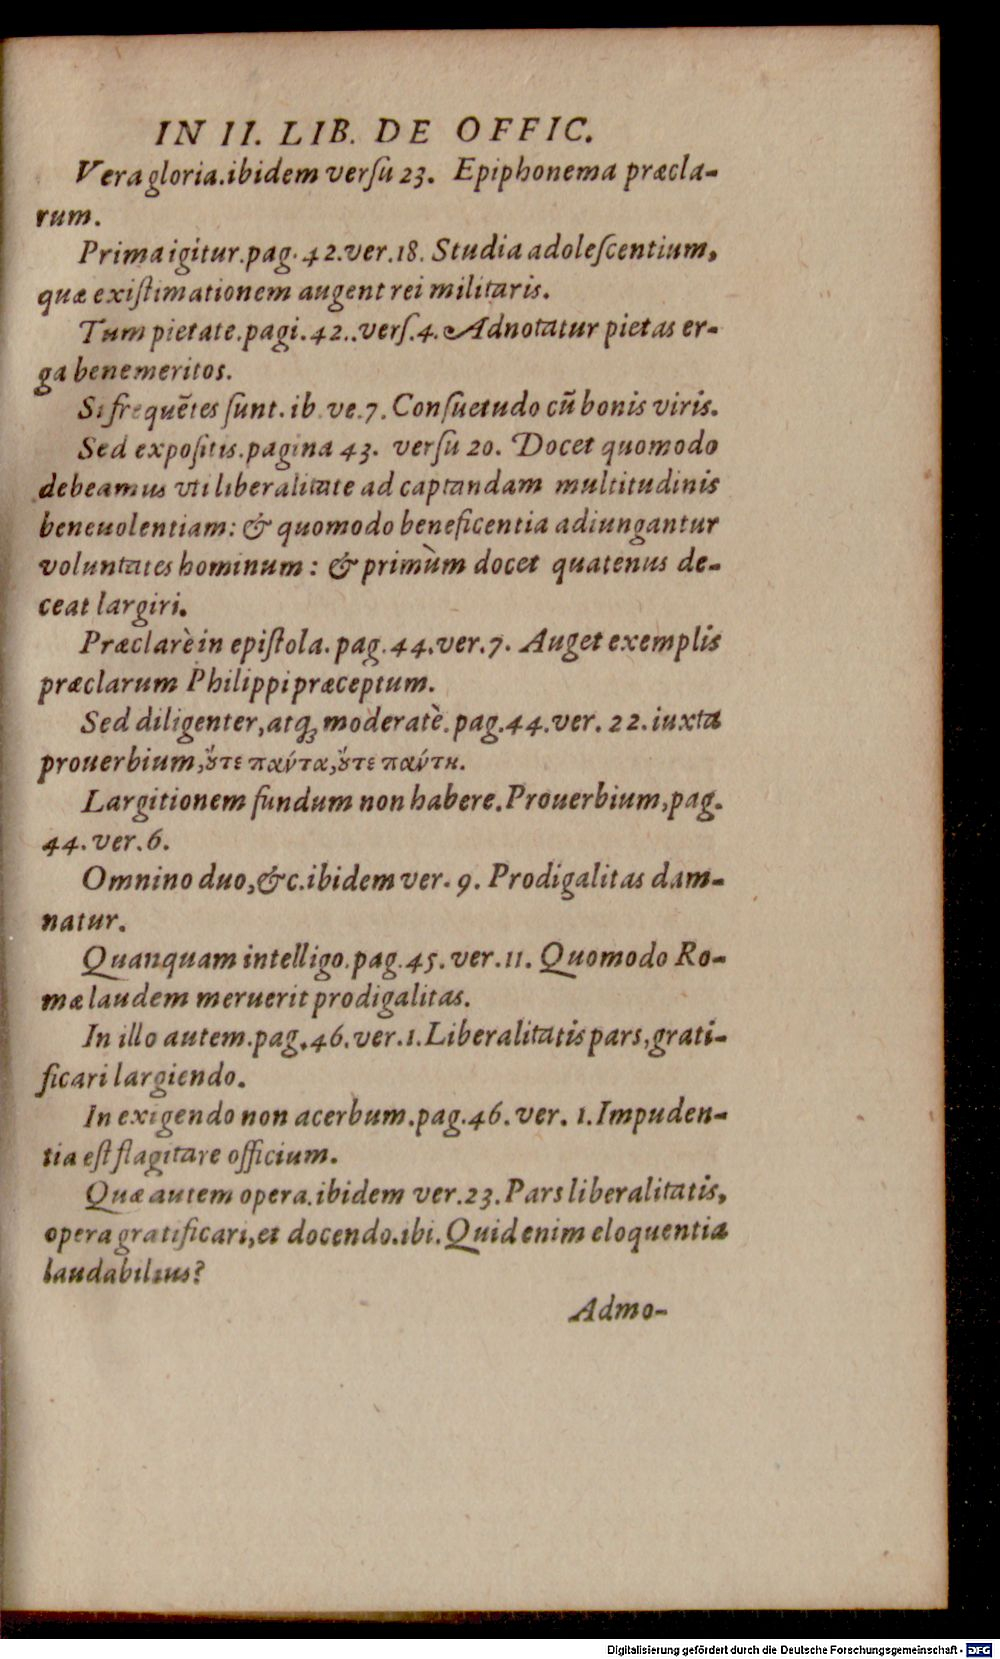 IN II. LIB. DE OFFIC.
Vera gloria.ibidem verſu 23. Epiphonema præcla-
rum.
Prima igitur.pag. 42.ver.18. Studia adoleſcentium,
quæ exiſtimationem augent rei militaris.
Tum pietate.pagi.42..verſ.4. Adnotatur pietas er-
ga benemeritos.
Si frequẽtes ſunt. ib. ve.7. Conſuetudo cũ bonis viris.
Sed expoſitis.pagina 43. verſu 20. Docet quomodo
debeamus vti liberalitate ad captandam multitudinis
beneuolentiam: & quomodo beneficentia adiungantur
voluntates hominum : & primùm docet quatenus de-
ceat largiri.
Præclarè in epiſtola. pag.44.ver.7. Auget exemplis
præclarum Philippi præceptum.
Sed diligenter,atq; moderatè.pag.44.ver. 22. iuxta
prouerbium,ȣ̓́τε παύτα,ȣ̓́τε παύτη.
Largitionem fundum non habere.Prouerbium,pag.
44. ver.6.
Omnino duo,&c.ibidem ver. 9. Prodigalitas dam-
natur.
Quanquam intelligo.pag.45.ver.11. Quomodo Ro-
mæ laudem meruerit prodigalitas.
In illo autem.pag.46.ver.1.Liberalitatis pars,grati-
ficari largiendo.
In exigendo non acerbum.pag.46. ver. 1.Impuden-
tia eſt flagitare officium.
Quæ autem opera.ibidem ver.23.Pars liberalitatis,
opera gratificari,et docendo.ibi.Quid enim eloquentia
laudabilius?
Admo-
Digitalisierung gefördert durch die Deutsche Forschungsgemeinschaft - DFG